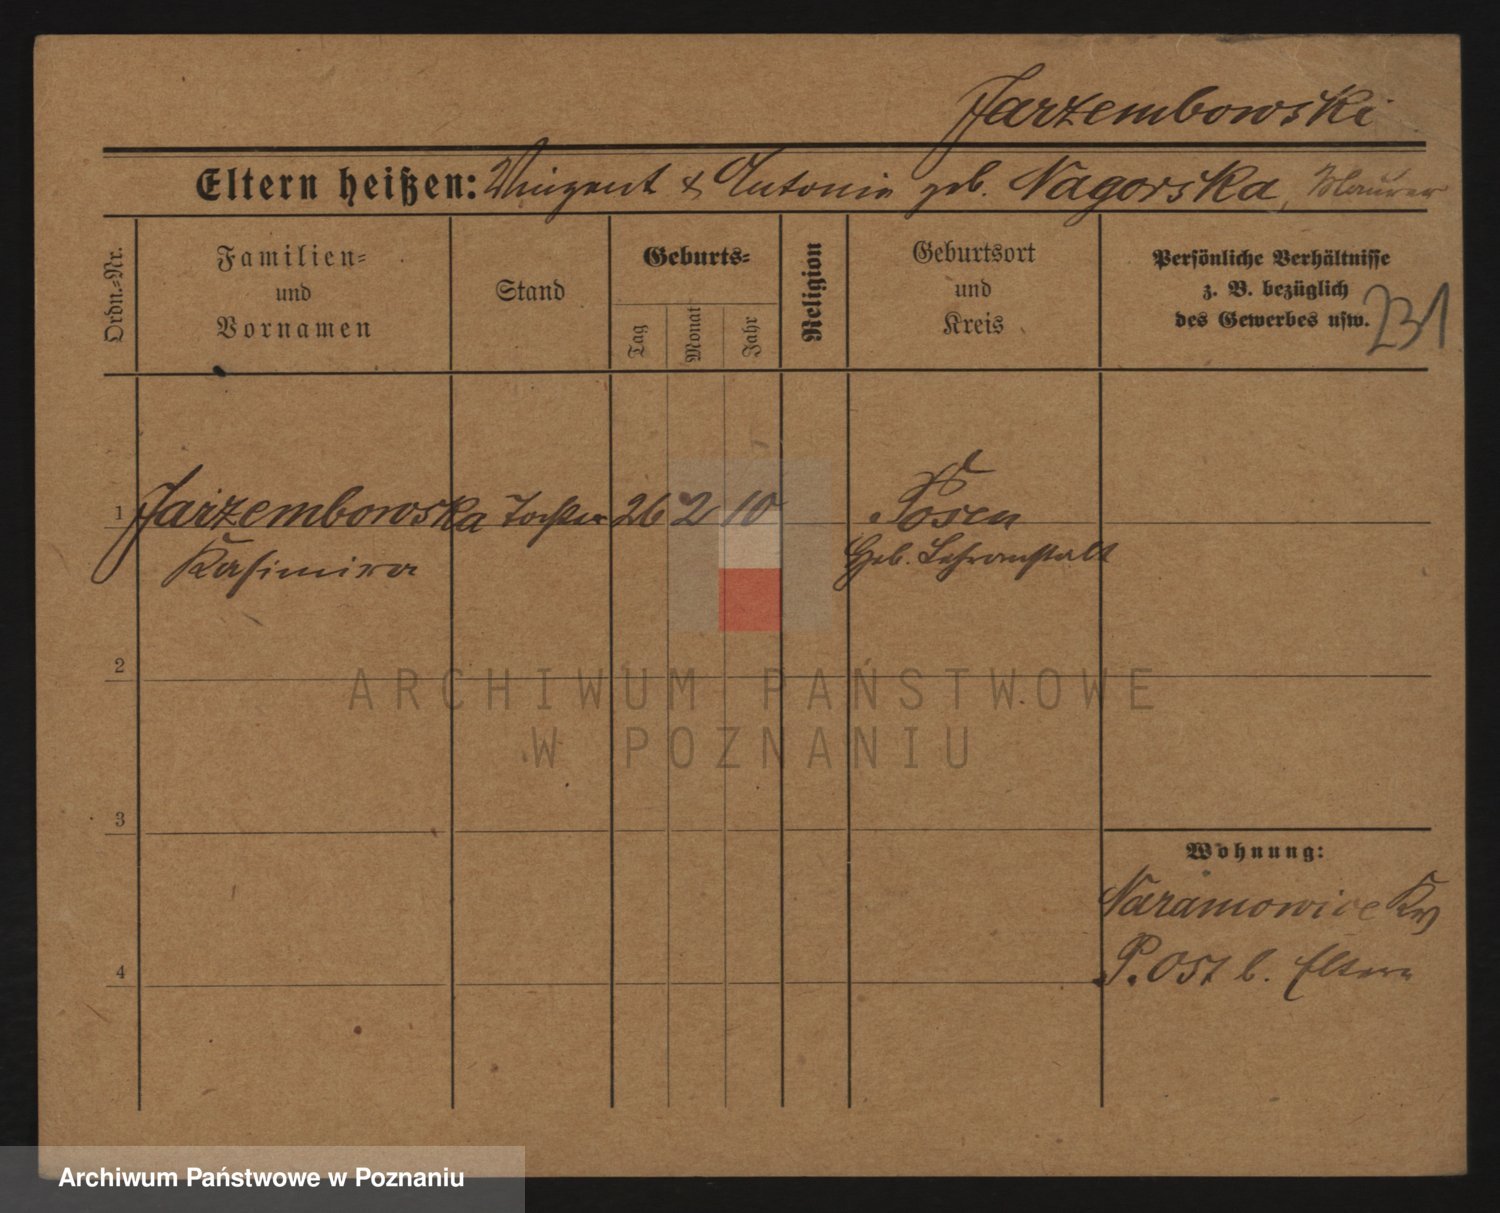 Jarzembowski
Eltern heißen: Vinzent & Antonie geb. Nagorska, Maurer
Ordn.-Nr.
Familien-
und
Vornamen
Stand
Geburts-
Tag
Monat
Jahr
Religion
Geburtsort
und
Kreis
Persönliche Verhältnisse
z. B. bezüglich
des Gewerbes usw.
231
1 Jarzembowska Tochter 26 2 10 Posen
Kasimira Heb. Lehranstalt
2
ARCHIWUM PAŃSTWOWE
W POZNANIU
3
Wohnung:
Naramowice Kr
4 P. Ost b. Eltern
Archiwum Państwowe w Poznaniu